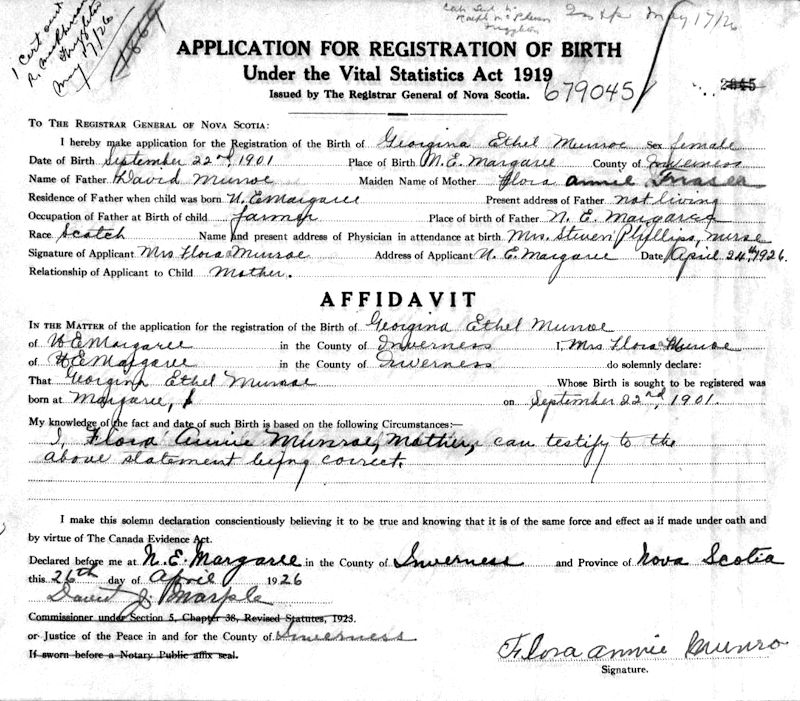 1 Cert out
May 17/26
1864
May 17/26
APPLICATION FOR REGISTRATION OF BIRTH
Under the Vital Statistics Act 1919
Issued by The Registrar General of Nova Scotia.
679045
2845
To The Registrar General of Nova Scotia:
I hereby make application for the Registration of the Birth of Georgina Ethel Munroe Sex female
Date of Birth September 22nd, 1901 Place of Birth N. E. Margaree County of Inverness
Name of Father David Munroe Maiden Name of Mother Flora Annie Fraser
Residence of Father when child was born N. E Margaree Present address of Father not living
Occupation of Father at Birth of child farmer Place of birth of Father N. E. Margaree
Race Scotch Name and present address of Physician in attendance at birth Mrs. Steven Phyllips, nurse
Signature of Applicant Mrs Flora Munroe Address of Applicant N. E. Margaree Date April 24th, 1926.
Relationship of Applicant to Child Mother.
AFFIDAVIT
In the Matter of the application for the registration of the Birth of Georgina Ethel Munroe
of N E Margaree in the County of Inverness I, Mrs Flora Munroe
of N E Margaree in the County of Inverness do solemnly declare:
That Georgina Ethel Munroe Whose Birth is sought to be registered was
born at Margaree, on September 22nd, 1901.
My knowledge of the fact and date of such Birth is based on the following Circumstances:—
I, Flora Annie Munroe, Mother, can testify to the
above statement being correct.
I make this solemn declaration conscientiously believing it to be true and knowing that it is of the same force and effect as if made under oath and
by virtue of The Canada Evidence Act.
Declared before me at N. E. Margaree in the County of Inverness and Province of Nova Scotia
this 26th day of April 1926
David J Marple
Commissioner under Section 5, Chapter 38, Revised Statutes, 1923.
or Justice of the Peace in and for the County of Inverness
If sworn before a Notary Public affix seal.
Flora Annie Munro
Signature.